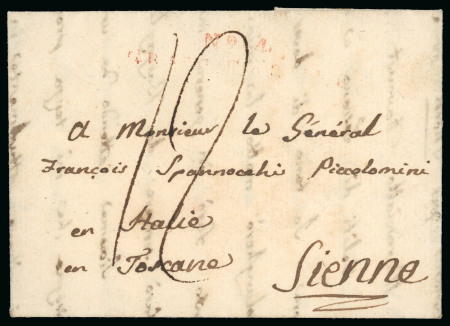 18
A Monsieur le Général
François Spannocchi Piccolomini
en Italie
en Toscane
Sienne